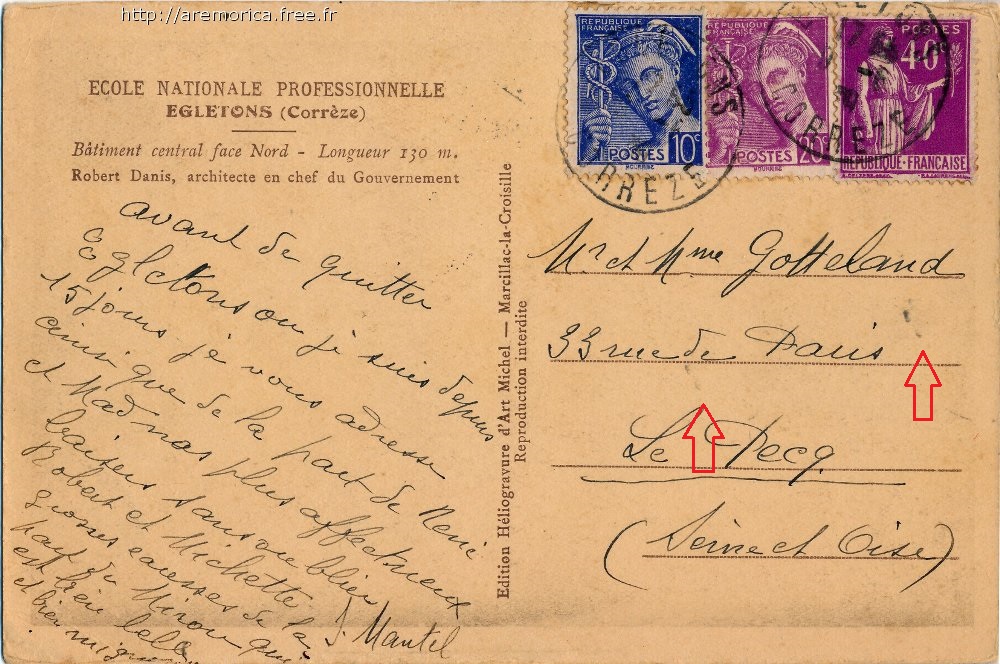 http://aremorica.free.fr
ECOLE NATIONALE PROFESSIONNELLE
EGLETONS (Corrèze)
Bâtiment central face Nord - Longueur 130 m.
Robert Danis, architecte en chef du Gouvernement
avant de quitter
Egletons ou je suis depuis
15 jours je vous adresse
ainsi que de la part de René
et Mad nos plus affectueux
baisers sans oublier
Robert et Michette
grosses caresses de la
part de qui
est bien belle
et bien
J. Mantel
Edition Héliogravure d'Art Michel — Marcillac-la-Croisille
Reproduction interdite
REPUBLIQUE FRANÇAISE
POSTES 10c
REPUBLIQUE FRANÇAISE
POSTES 20c
POSTES
40c
REPUBLIQUE-FRANÇAISE
CORREZE
Mr et Mme Gotteland
33 rue de Paris
Le Pecq
(Seine et Oise)